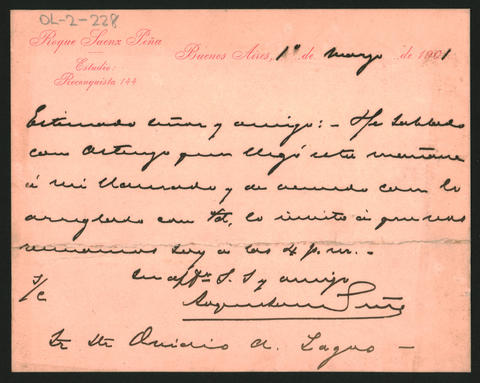 OL-2-228
Roque Saenz Peña
Estudio:
Reconquista 144
Buenos Aires, 1º de Marzo de 1901
Estimado señor y amigo: - He hablado
con Astengo quien llegó esta mañana
á mi llamado y de acuerdo con lo
arreglado con Vd, lo invito á que nos
reunamos hoy a las 4 p.m. -
S. S y amigo
Roque Saenz Peña
s/c
Sr Dr Ovidio A. Lagos -